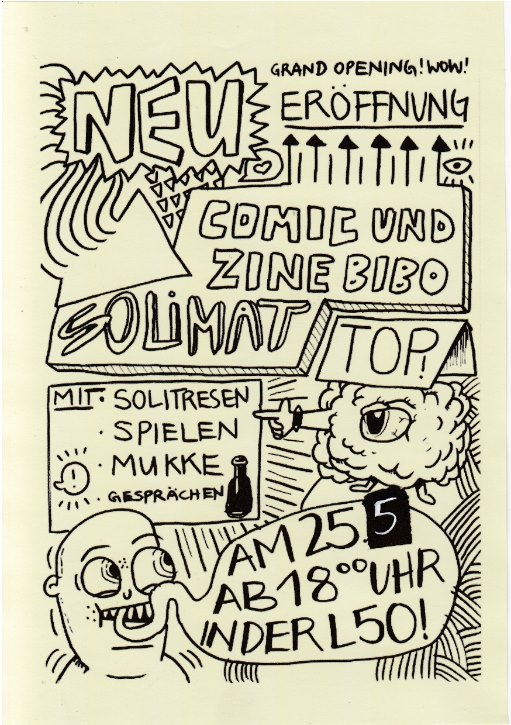 NEU
GRAND OPENING! WOW!
ERÖFFNUNG
COMIC UND
ZINE BIBO
SOLIMAT
TOP!
MIT: SOLITRESEN
· SPIELEN
· MUKKE
· GESPRÄCHEN
!
AM 25.5
AB 18°° UHR
IN DER L50!